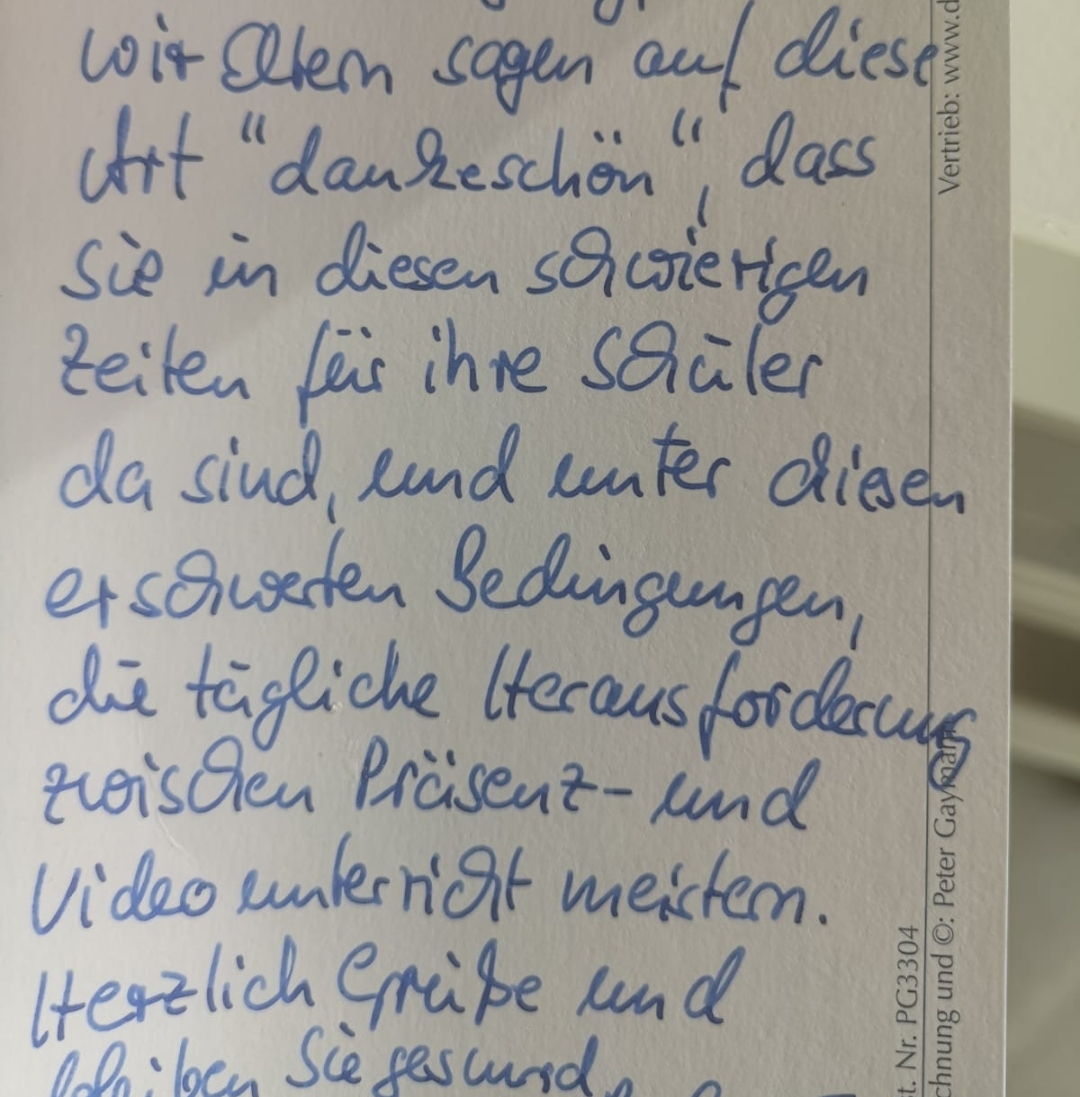 wir Eltern sagen auf diese
Art "dankeschön", dass
Sie in diesen schwierigen
Zeiten für ihre Schüler
da sind, und unter diesen
erschwerten Bedingungen,
die tägliche Herausforderung
zwischen Präsenz- und
Videounterricht meistern.
Herzlich Grüße und
bleiben Sie gesund
Vertrieb: www.d
t. Nr. PG3304
chnung und ©: Peter Gaymann